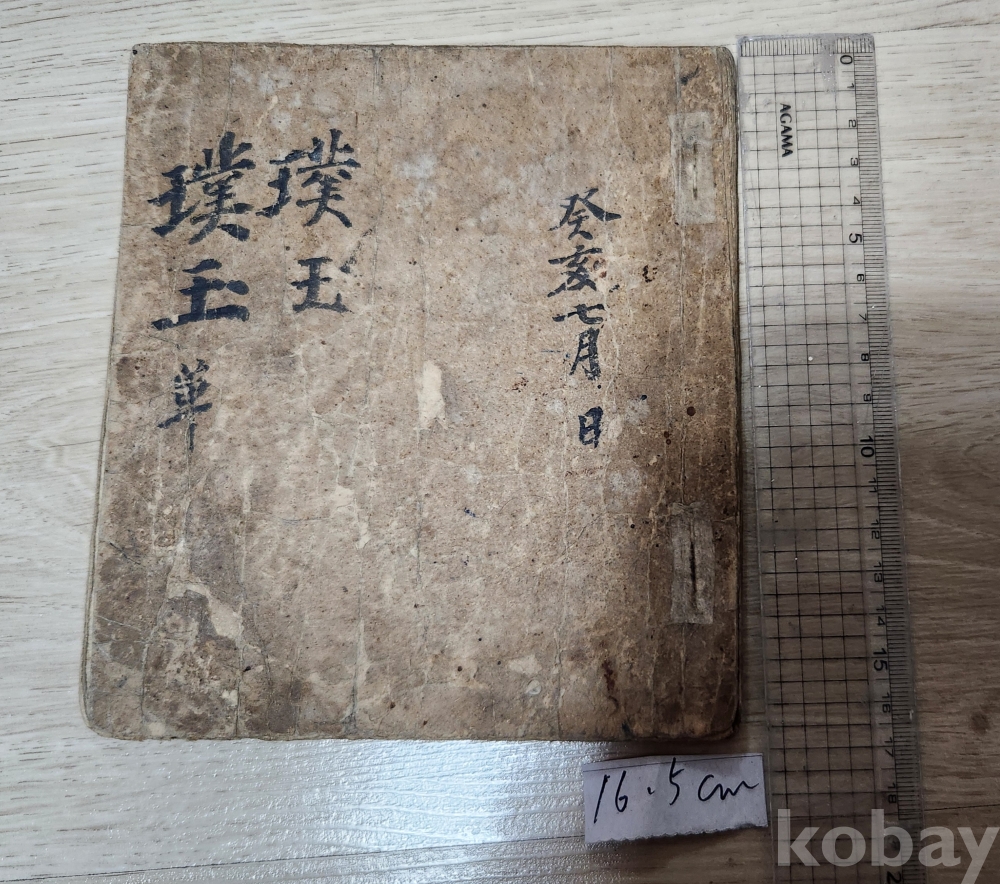 癸亥七月 日
璞玉
璞玉
AGAMA
0 1 2 3 4 5 6 7 8 9 10 11 12 13 14 15 16 17 18
16.5cm
kobay